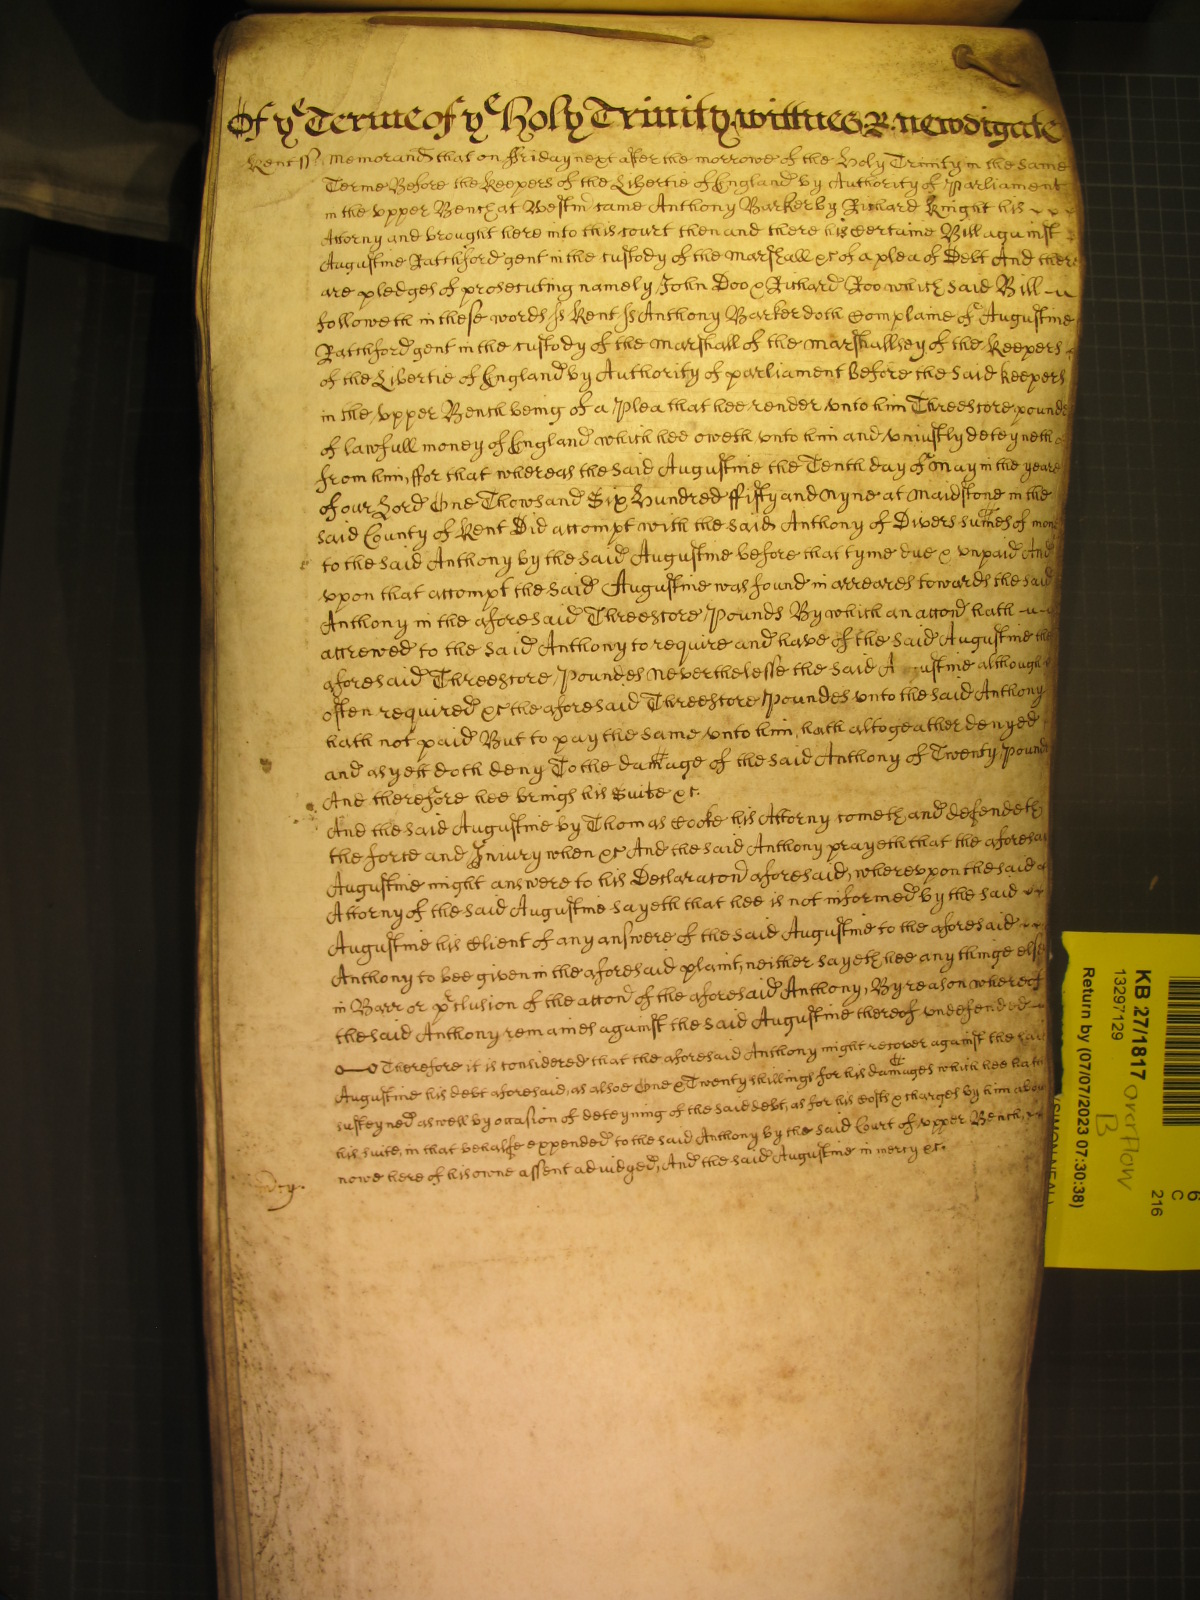 Of ye Terme of ye Holy Trinity wittnes R: Newdigate
Kent ss. Memorand that on ffriday next after the morrowe of the Holy Trinity in the same
Terme Before the Keepers of the Libertie of England by Authority of Parliament
in the vpper Bench at Westm came Anthony Barker by Richard Knight his
Attorny and brought here into this court then and there his certaine Bill against
Augustine Ratchford gent in the custody of the Marshall &c of a plea of Debt And there
are pledges of prosecuting namely John Doo & Richard Roo which said Bill
followeth in these words ss Kent ss Anthony Barker doth complaine of Augustine
Ratchford gent in the custody of the Marshall of the Marshallsey of the Keepers
of the Libertie of England by Authority of parliament before the said keepers
in the vpper Bench being of a Plea that hee render vnto him Threescore pounde
of lawfull money of England which hee oweth vnto him and vniustly deteyneth
from him, ffor that whereas the said Augustine the Tenth day of May in the yeare
of our Lord One Thowsand Six Hundred ffifty and Nyne at Maidstone in the
said County of Kent Did accompt with the said Anthony of Divers sumes of mon
to the said Anthony by the said Augustine before that tyme due & vnpaid And
vpon that accompt the said Augustine was found in arreares towards the said
Anthony in the aforesaid Threescore Pounds By which an accon hath
accrewed to the said Anthony to require and have of the said Augustine the
aforesaid Threescore Poundes Neverthelesse the said A ustine although
often required &c the aforesaid Threescore Poundes vnto the said Anthony
hath not paid But to pay the same vnto him, hath altogeather denyed
and as yett doth deny To the damage of the said Anthony of Twenty Pound
And therefore hee brings his suite &c.
And the said Augustine by Thomas Cooke his Attorny cometh and defendeth
the force and Iniury when &c And the said Anthony prayeth that the aforesai
Augustine might answere to his Declaracon aforesaid, wherevpon the said
Attorny of the said Augustine sayeth that hee is not informed by the said
Augustine his Client of any answere of the said Augustine to the aforesaid
Anthony to bee given in the aforesaid plaint, neither sayeth hee any thinge else
in Barr or pclusion of the accon of the aforesaid Anthony, By reason whereof
the said Anthony remaines against the said Augustine thereof vndefended
Therefore it is considered that the aforesaid Anthony might recover against the said
Augustine his debt aforesaid, as alsoe One & Twenty shillings for his damages which hee hath
susteyned aswell by occasion of deteyning of the said debt, as for his costs & charges by him about
his suite, in that behalfe expended to the said Anthony by the said Court of vpper Bench,
nowe here of his owne assent adiudged, And the said Augustine in mercy &c.
KB 27/1817
13297129
Return by (07/07/2023 07:30:38)
overflow
B
6
C
216